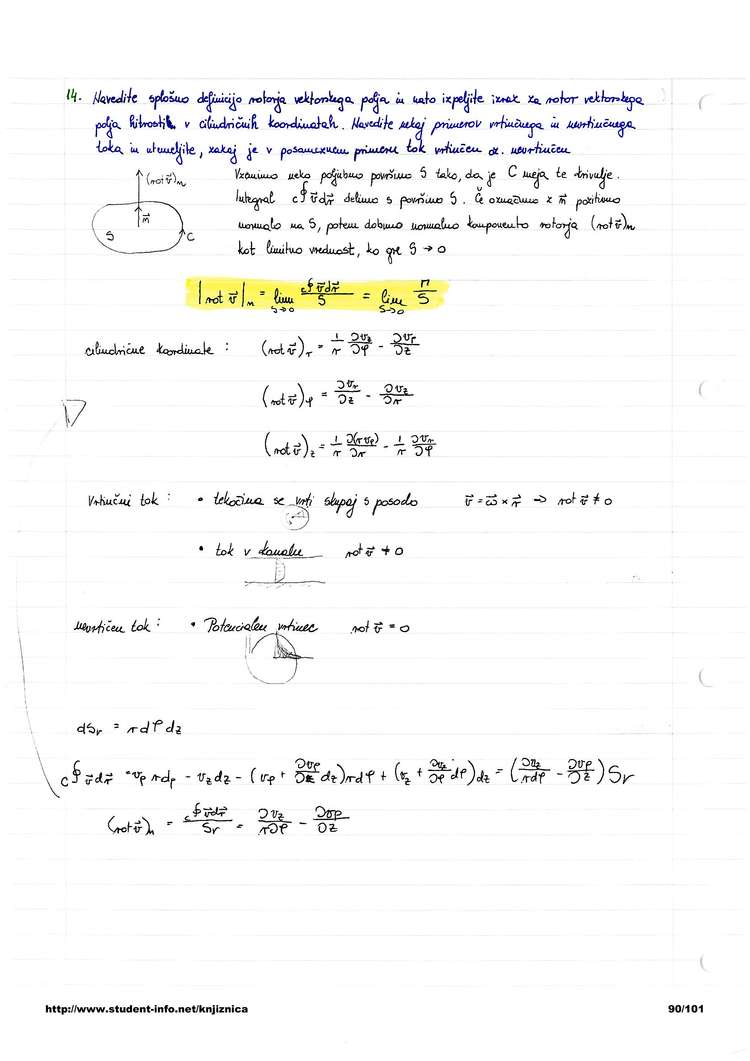 14. Navedite splošno definicijo rotorja vektorskega polja in nato izpeljite izraz za rotor vektorskega
polja hitrosti v cilindričnih koordinatah. Navedite nekaj primerov vrtinčnega in nevrtinčnega
toka in utemeljite, zakaj je v posameznem primeru tok vrtinčen oz. nevrtinčen
Vzamimo neko poljubno površino S tako, da je C meja te krivulje.
Integral c∮v⃗dr⃗ delimo s površino S. Če označimo z n⃗ pozitivno
normalo na S, potem dobimo normalno komponento rotorja (rot v⃗)n
kot limitno vrednost, ko gre S → 0
(rot v⃗)n
n⃗
S
C
|rot v⃗|n = lim S→0 c∮v⃗dr⃗/S = lim S→0 Γ/S
cilindrične koordinate : (rot v⃗)r = 1/r ∂vz/∂φ - ∂vφ/∂z
(rot v⃗)φ = ∂vr/∂z - ∂vz/∂r
(rot v⃗)z = 1/r ∂(r vφ)/∂r - 1/r ∂vr/∂φ
Vrtinčni tok : • tekočina se vrti skupaj s posodo v⃗ = ω⃗ × r⃗ ⇒ rot v⃗ ≠ 0
• tok v kanalu rot v⃗ ≠ 0
nevrtičen tok : • Potencialen vrtinec rot v⃗ = 0
dSr = r dφ dz
c∮v⃗dr⃗ = vφ r dφ - vz dz - (vφ + ∂vφ/∂z dz) r dφ + (vz + ∂vz/∂φ dφ) dz = (∂vz/r∂φ - ∂vφ/∂z) Sr
(rot v⃗)n = c∮v⃗dr⃗/Sr = ∂vz/r∂φ - ∂vφ/∂z
http://www.student-info.net/knjiznica
90/101